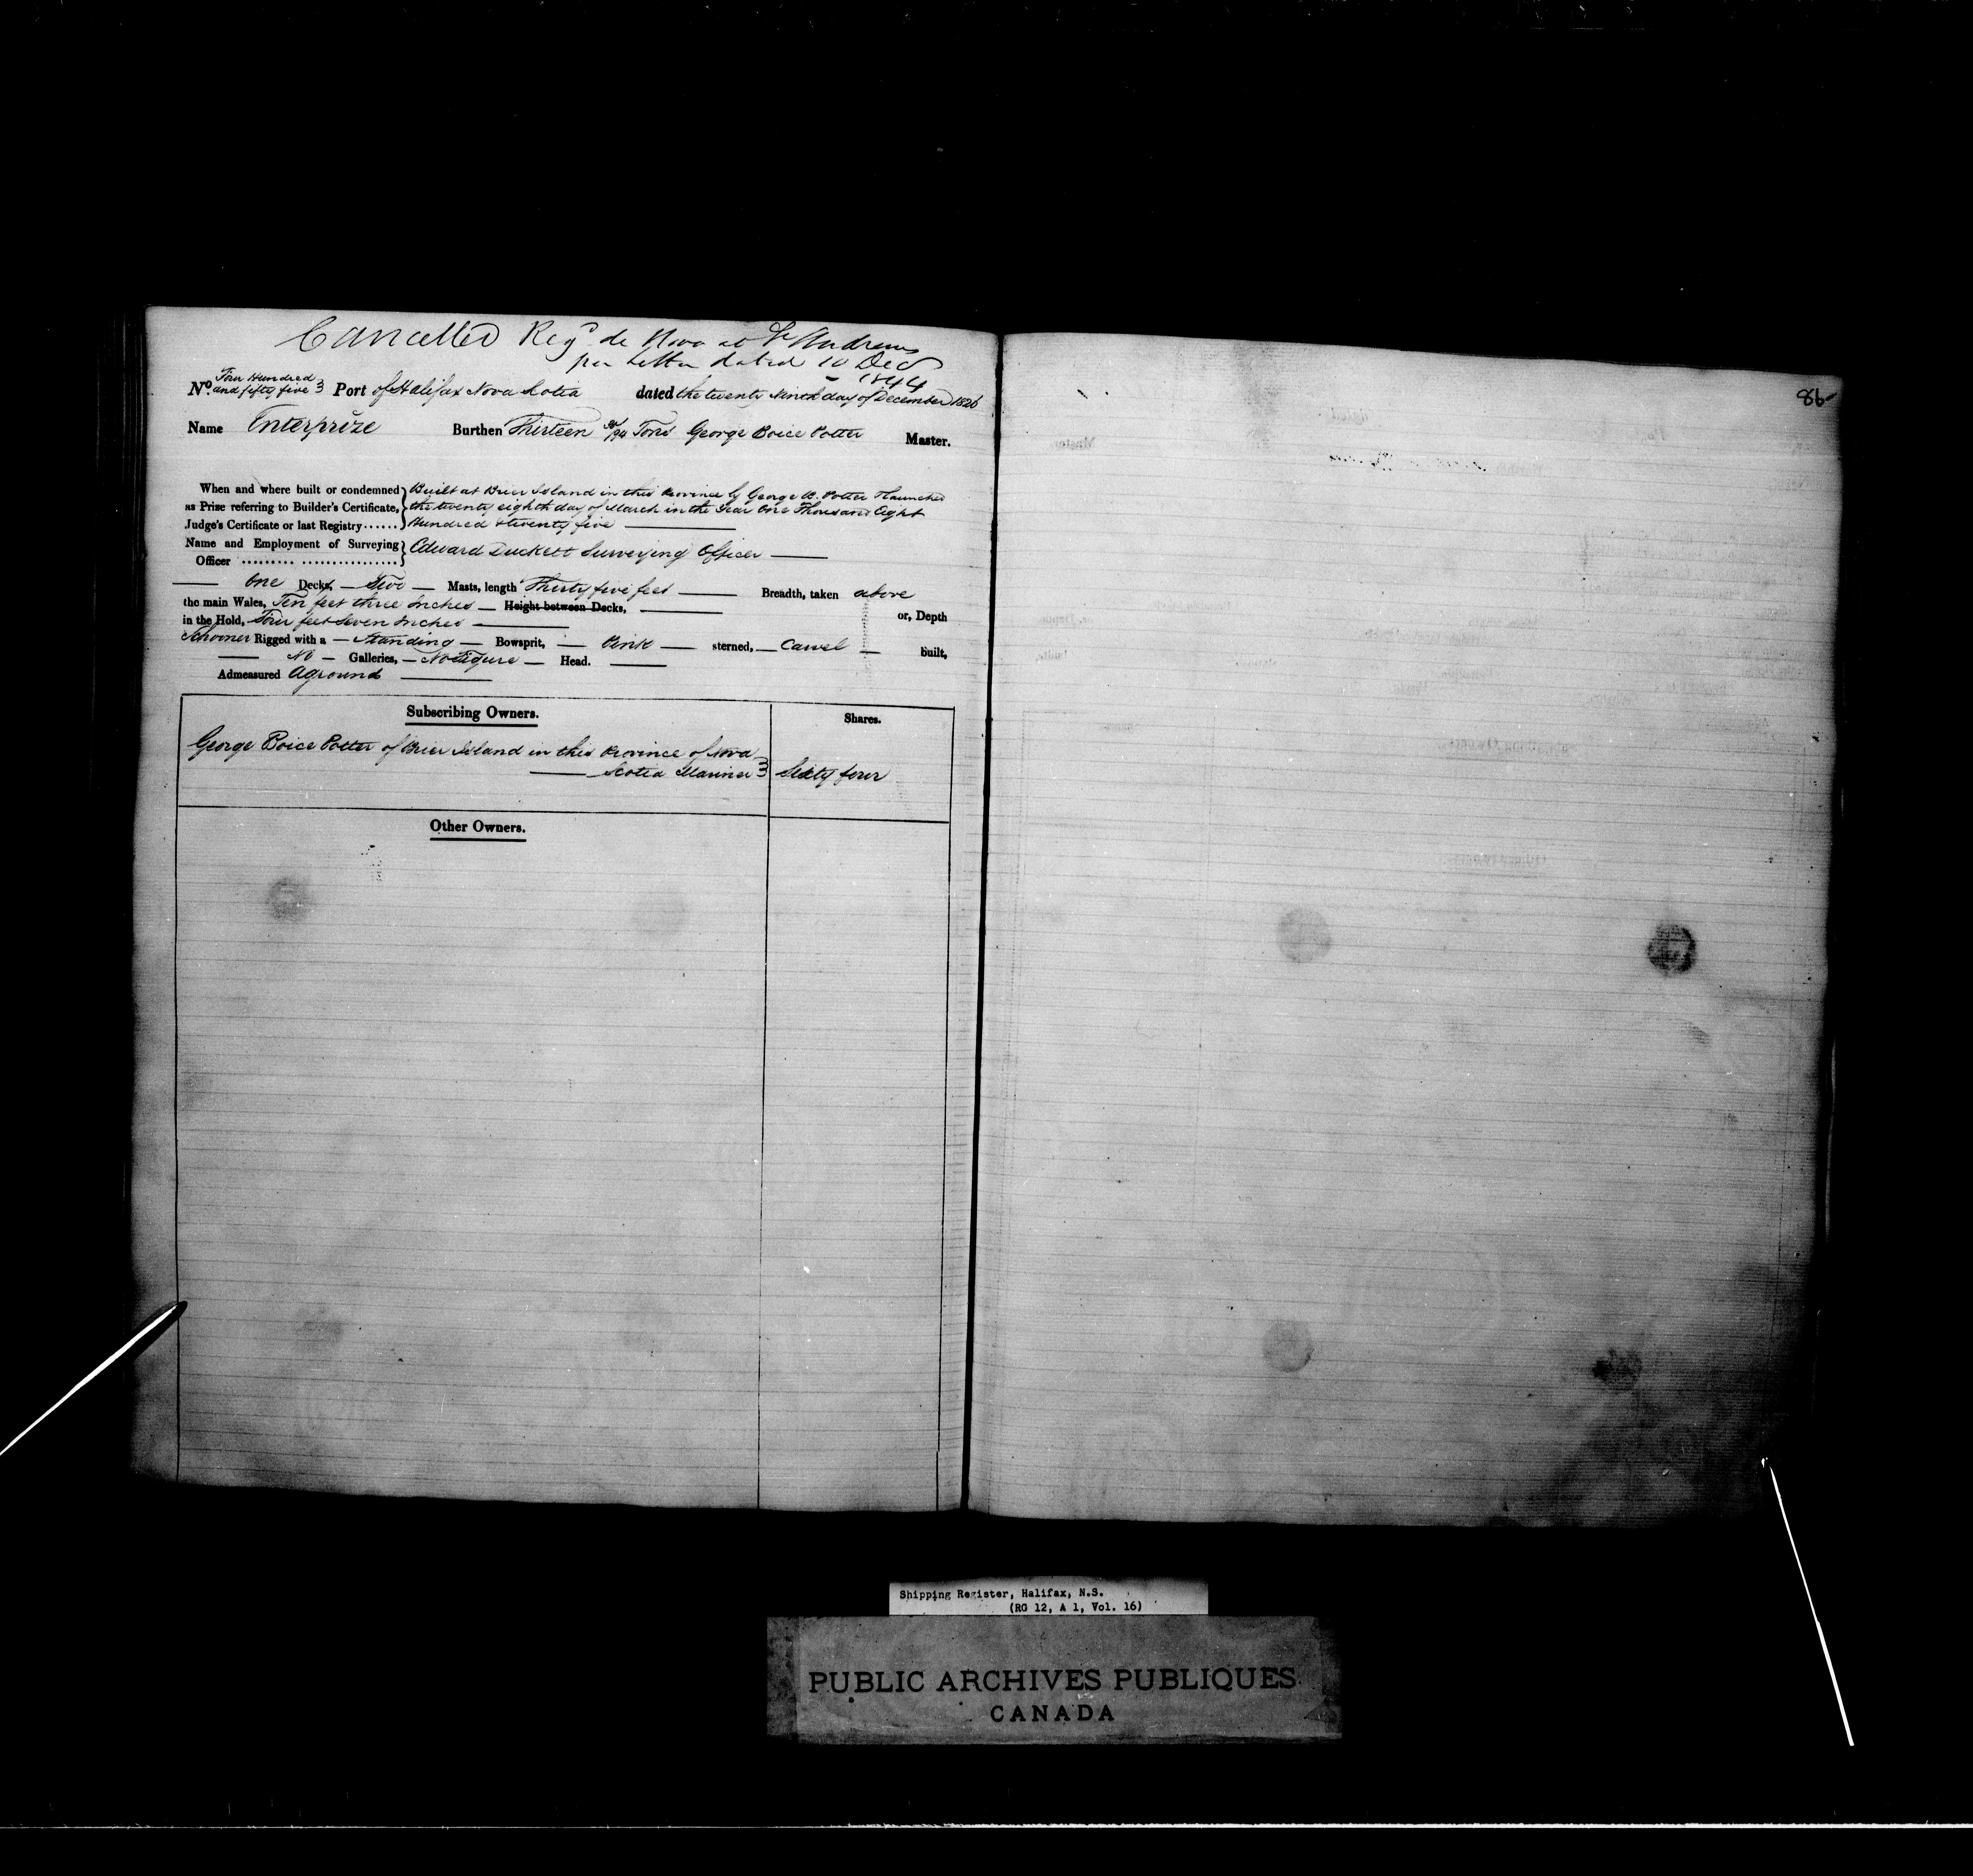 Cancelled Regd de Novo at St Andrews
per Letter dated 10 Dec
1844
No. Four Hundred and fifty five Port of Halifax Nova Scotia dated the twenty Ninth day of December 1826
Name Enterprize Burthen Thirteen /94 Tons George Boice Potter Master.
When and where built or condemned Built at Brier Island in this Province by George B. Potter & launched
as Prize referring to Builder's Certificate, the twenty eighth day of March in the Year One Thousand Eight
Judge's Certificate or last Registry...... Hundred & twenty five
Name and Employment of Surveying Edward Duckett Surveying Officer
Officer ......... .................
One Decks, Two Masts, length Thirty five feet Breadth, taken above
the main Wales, Ten feet three Inches Height between Decks, or, Depth
in the Hold, Four feet Seven Inches
Schooner Rigged with a Standing Bowsprit, Pink sterned, Carvel built,
No Galleries, No Figure Head.
Admeasured Aground
Subscribing Owners. Shares.
George Boice Potter of Brier Island in this Province of Nova
Scotia Mariner Sixty four
Other Owners.
86
Shipping Register, Halifax, N.S.
(RG 12, A 1, Vol. 16)
PUBLIC ARCHIVES PUBLIQUES
CANADA